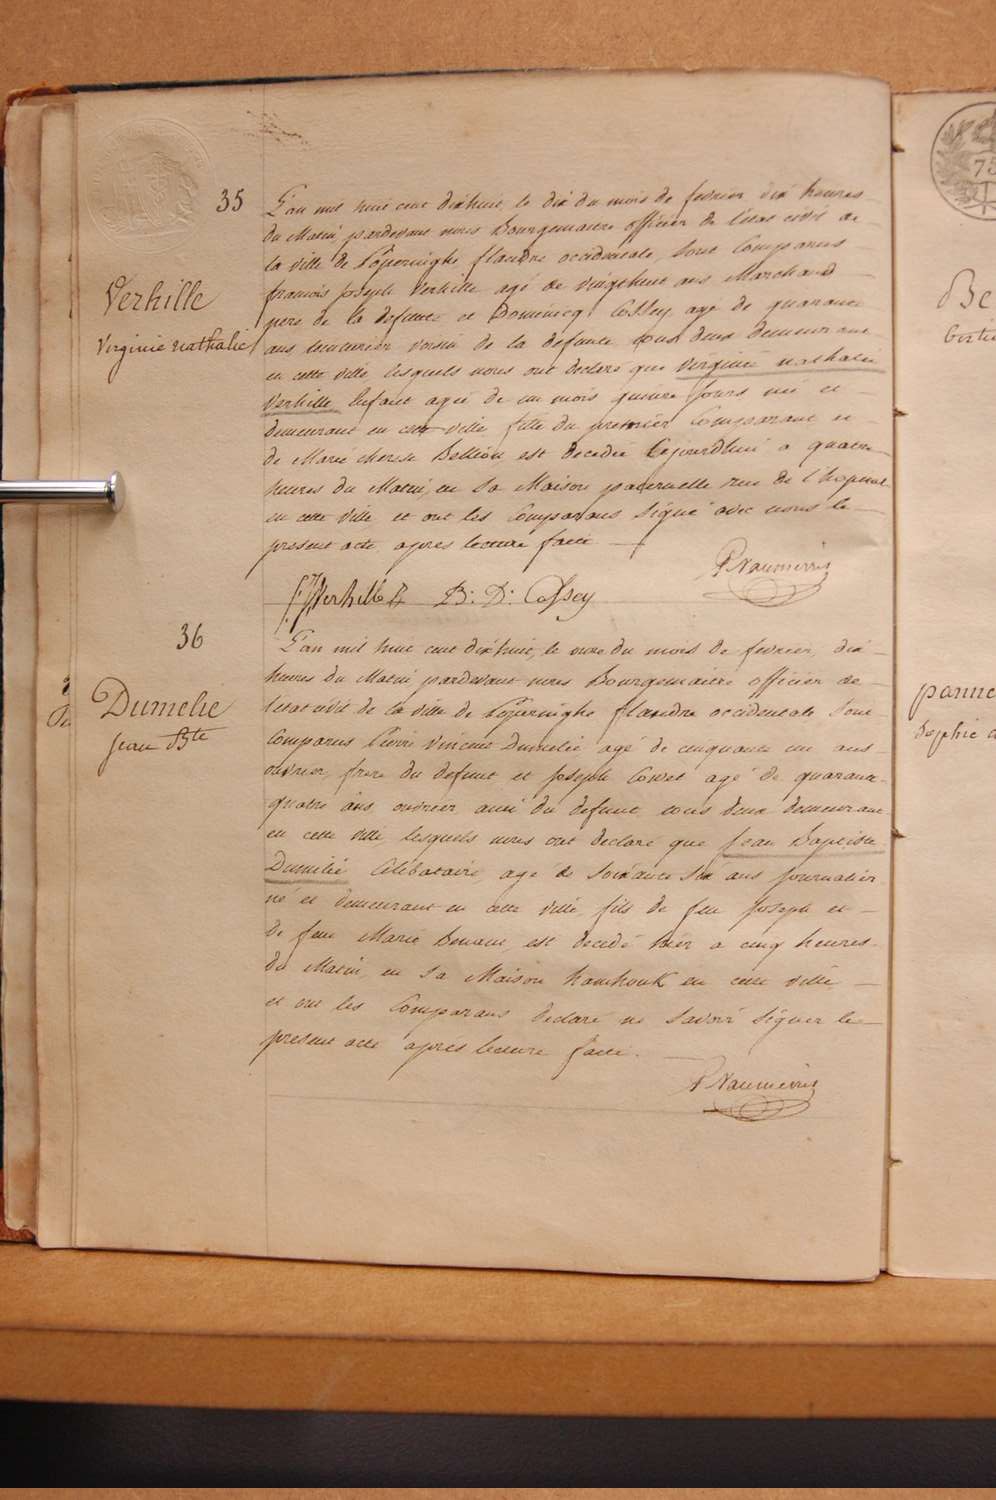 35
L'an mil huit cent dixhuit le dix du mois de fevrier dix heures
du Matin, pardevant nous Bourgemaitre officier de l'état civil de
la ville de Poperinghe, flandre occidentale, sont Comparus
françois joseph Verhille agé de vingthuit ans Marchand
pere de la defunte et Dominicq Cossey agé de quarante
ans voisin de la defunte tous deux demeurant
en cette ville lesquels nous ont declaré que virginie nathalie
Verhille Enfant agée de un mois quinze jours née et
demeurant en cette ville fille du premier Comparant et
de Marie therese Bellion est decedée Cejourdhui a quatre
heures du Matin, en sa Maison paternelle rue de l'hopital
en cette ville et ont les Comparans signé avec nous le
present acte apres lecture faite
Verhille
Virginie nathalie
fJVerhille B. D. Cossey
36
L'an mil huit cent dixhuit, le onze du mois de fevrier, dix
heures du Matin pardevant nous Bourgemaitre officier de
l'etat civil de la ville de Poperinghe flandre occidentale sont
Comparus Pierre vincent Dumelie agé de cinquante un ans
ouvrier, frere du defunt et joseph agé de quarante
quatre ans ouvrier ami du defunt tous deux demeurant
en cette ville lesquels nous ont declaré que jean Baptiste
Dumelié Célibataire, agé de soixante six ans journalier
né et demeurant en cette ville fils de feu joseph et
de feue Marie est decedé hier a cinq heures
du Matin, en sa Maison hamhouk en cette ville
et ont les Comparans declaré ne savoir signer le
present acte apres lecture faite.
Dumelie
jean Bte
Be
panne
Sophie
75